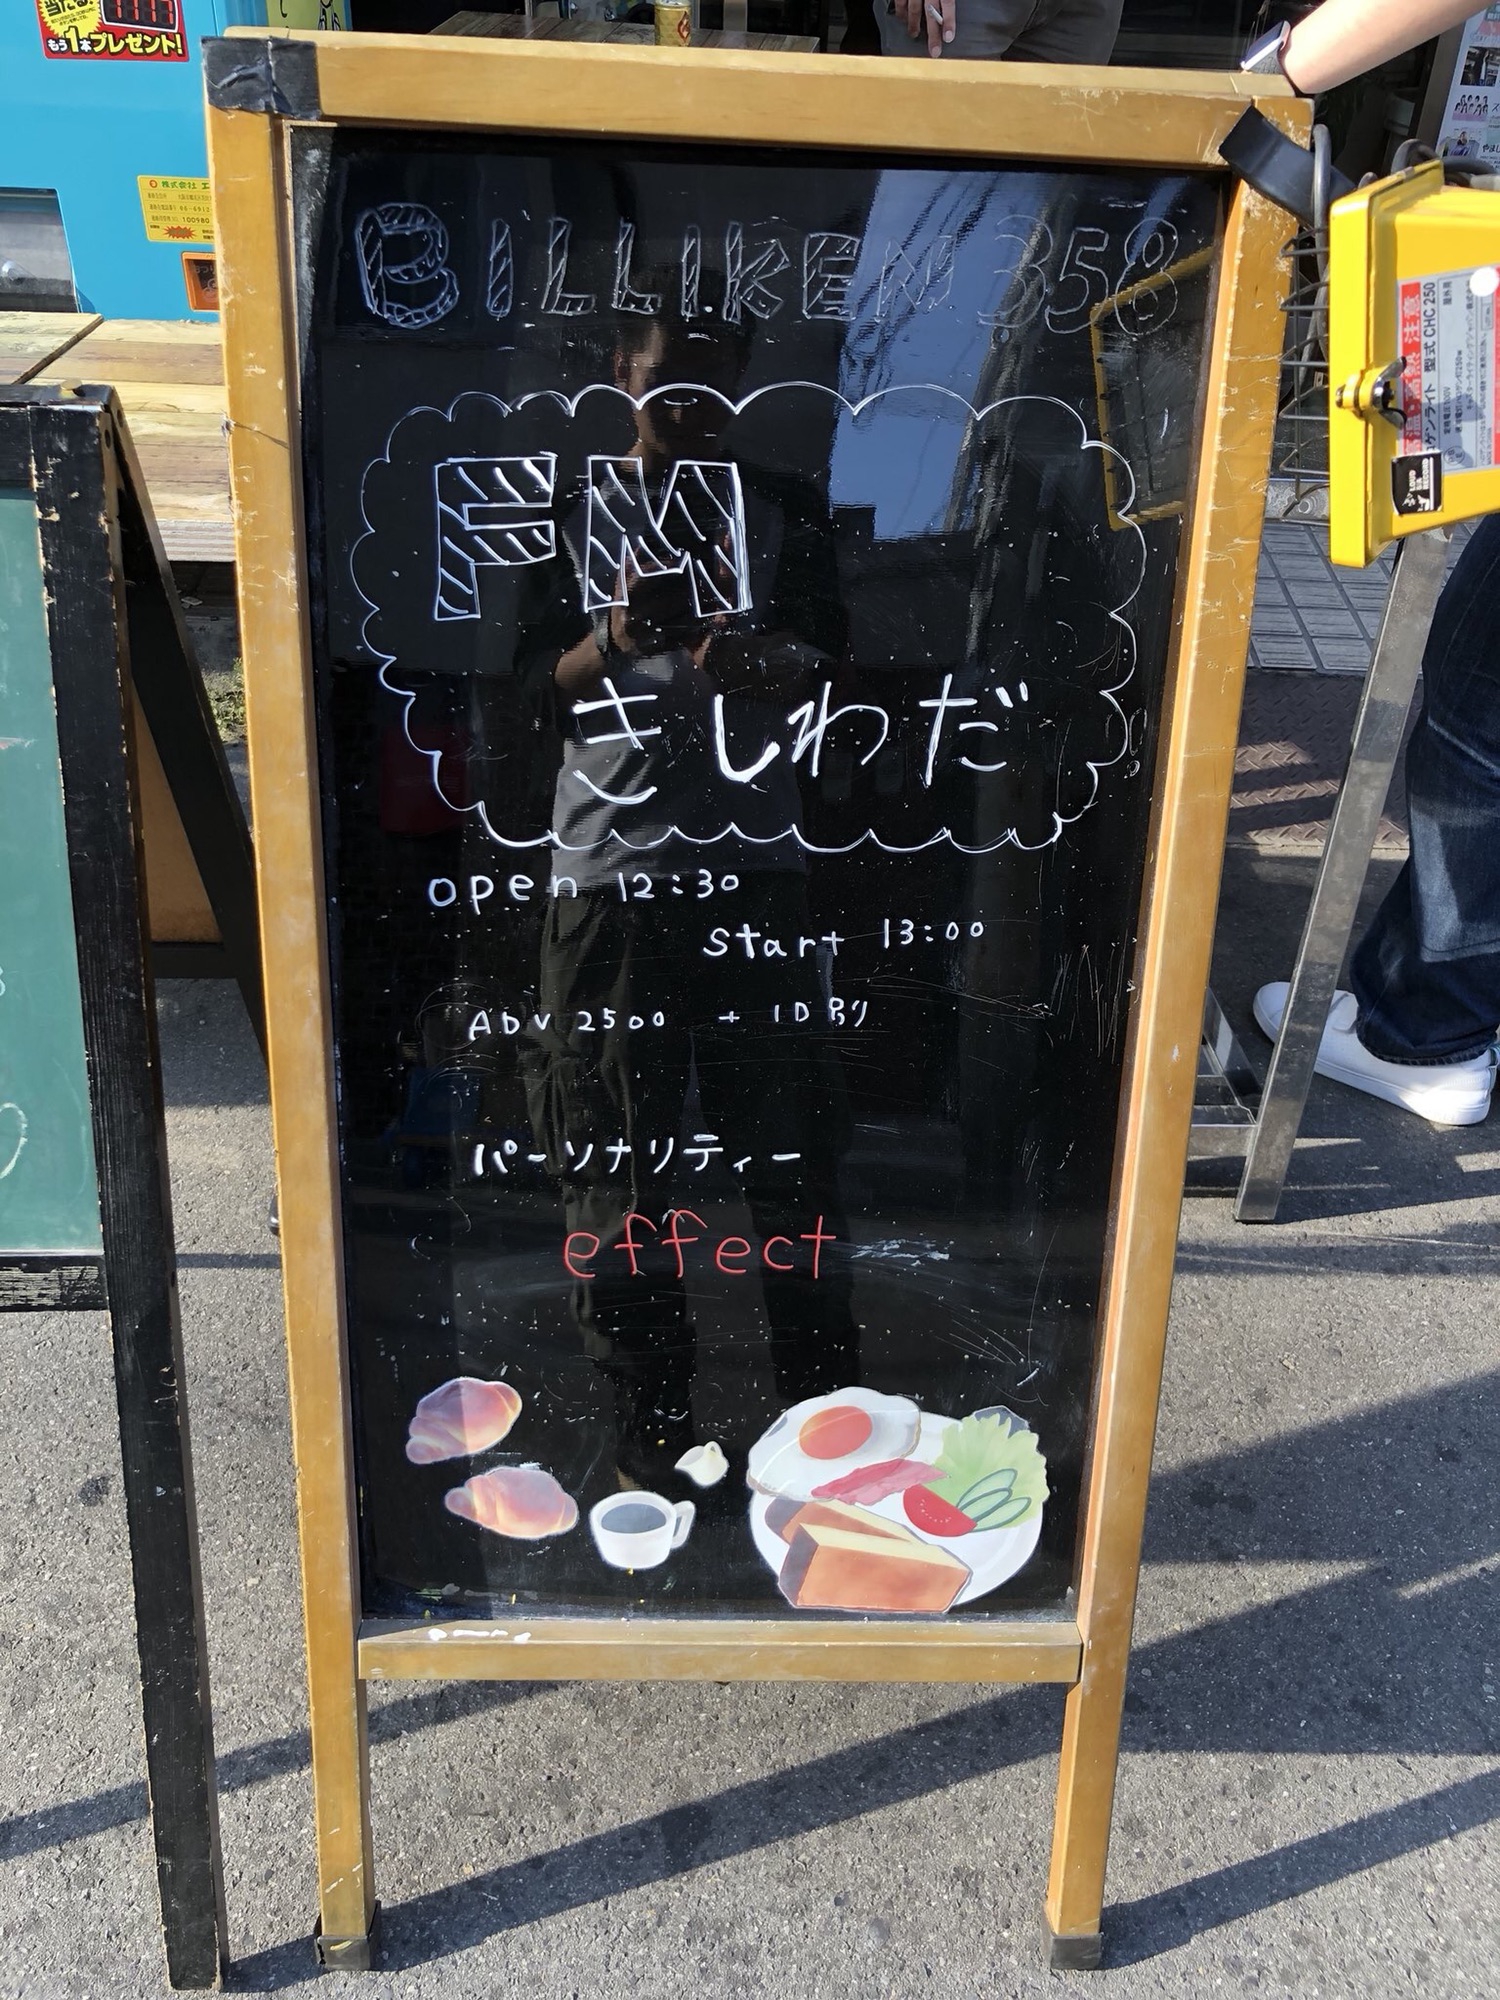 当たる!
もう1本プレゼント!
株式会社 エ
100980
BILLIKEN 358
FM
きしわだ
open 12:30
start 13:00
ADV 2500 + 1D別
パーソナリティー
effect
注意
ゲンライト 型式 CHC 250
屋外用